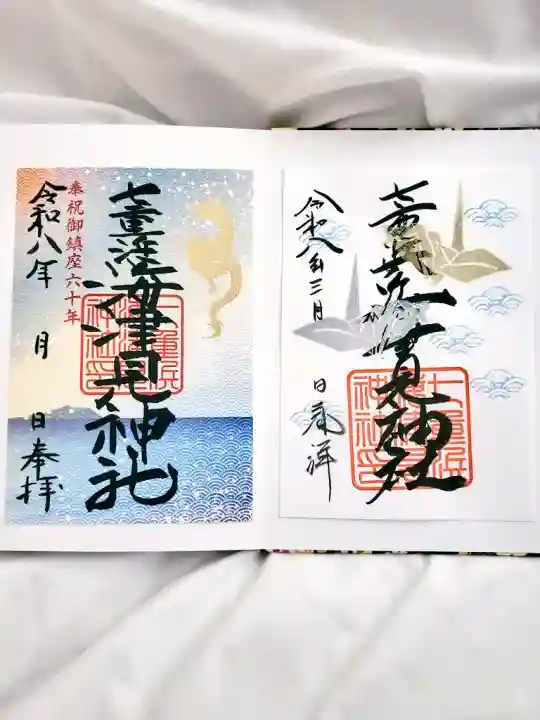 奉祝御鎮座六十年
七重浜海津見神社
令和八年 月 日奉拝
七重浜海津見神社
令和八年三月 日奉拝